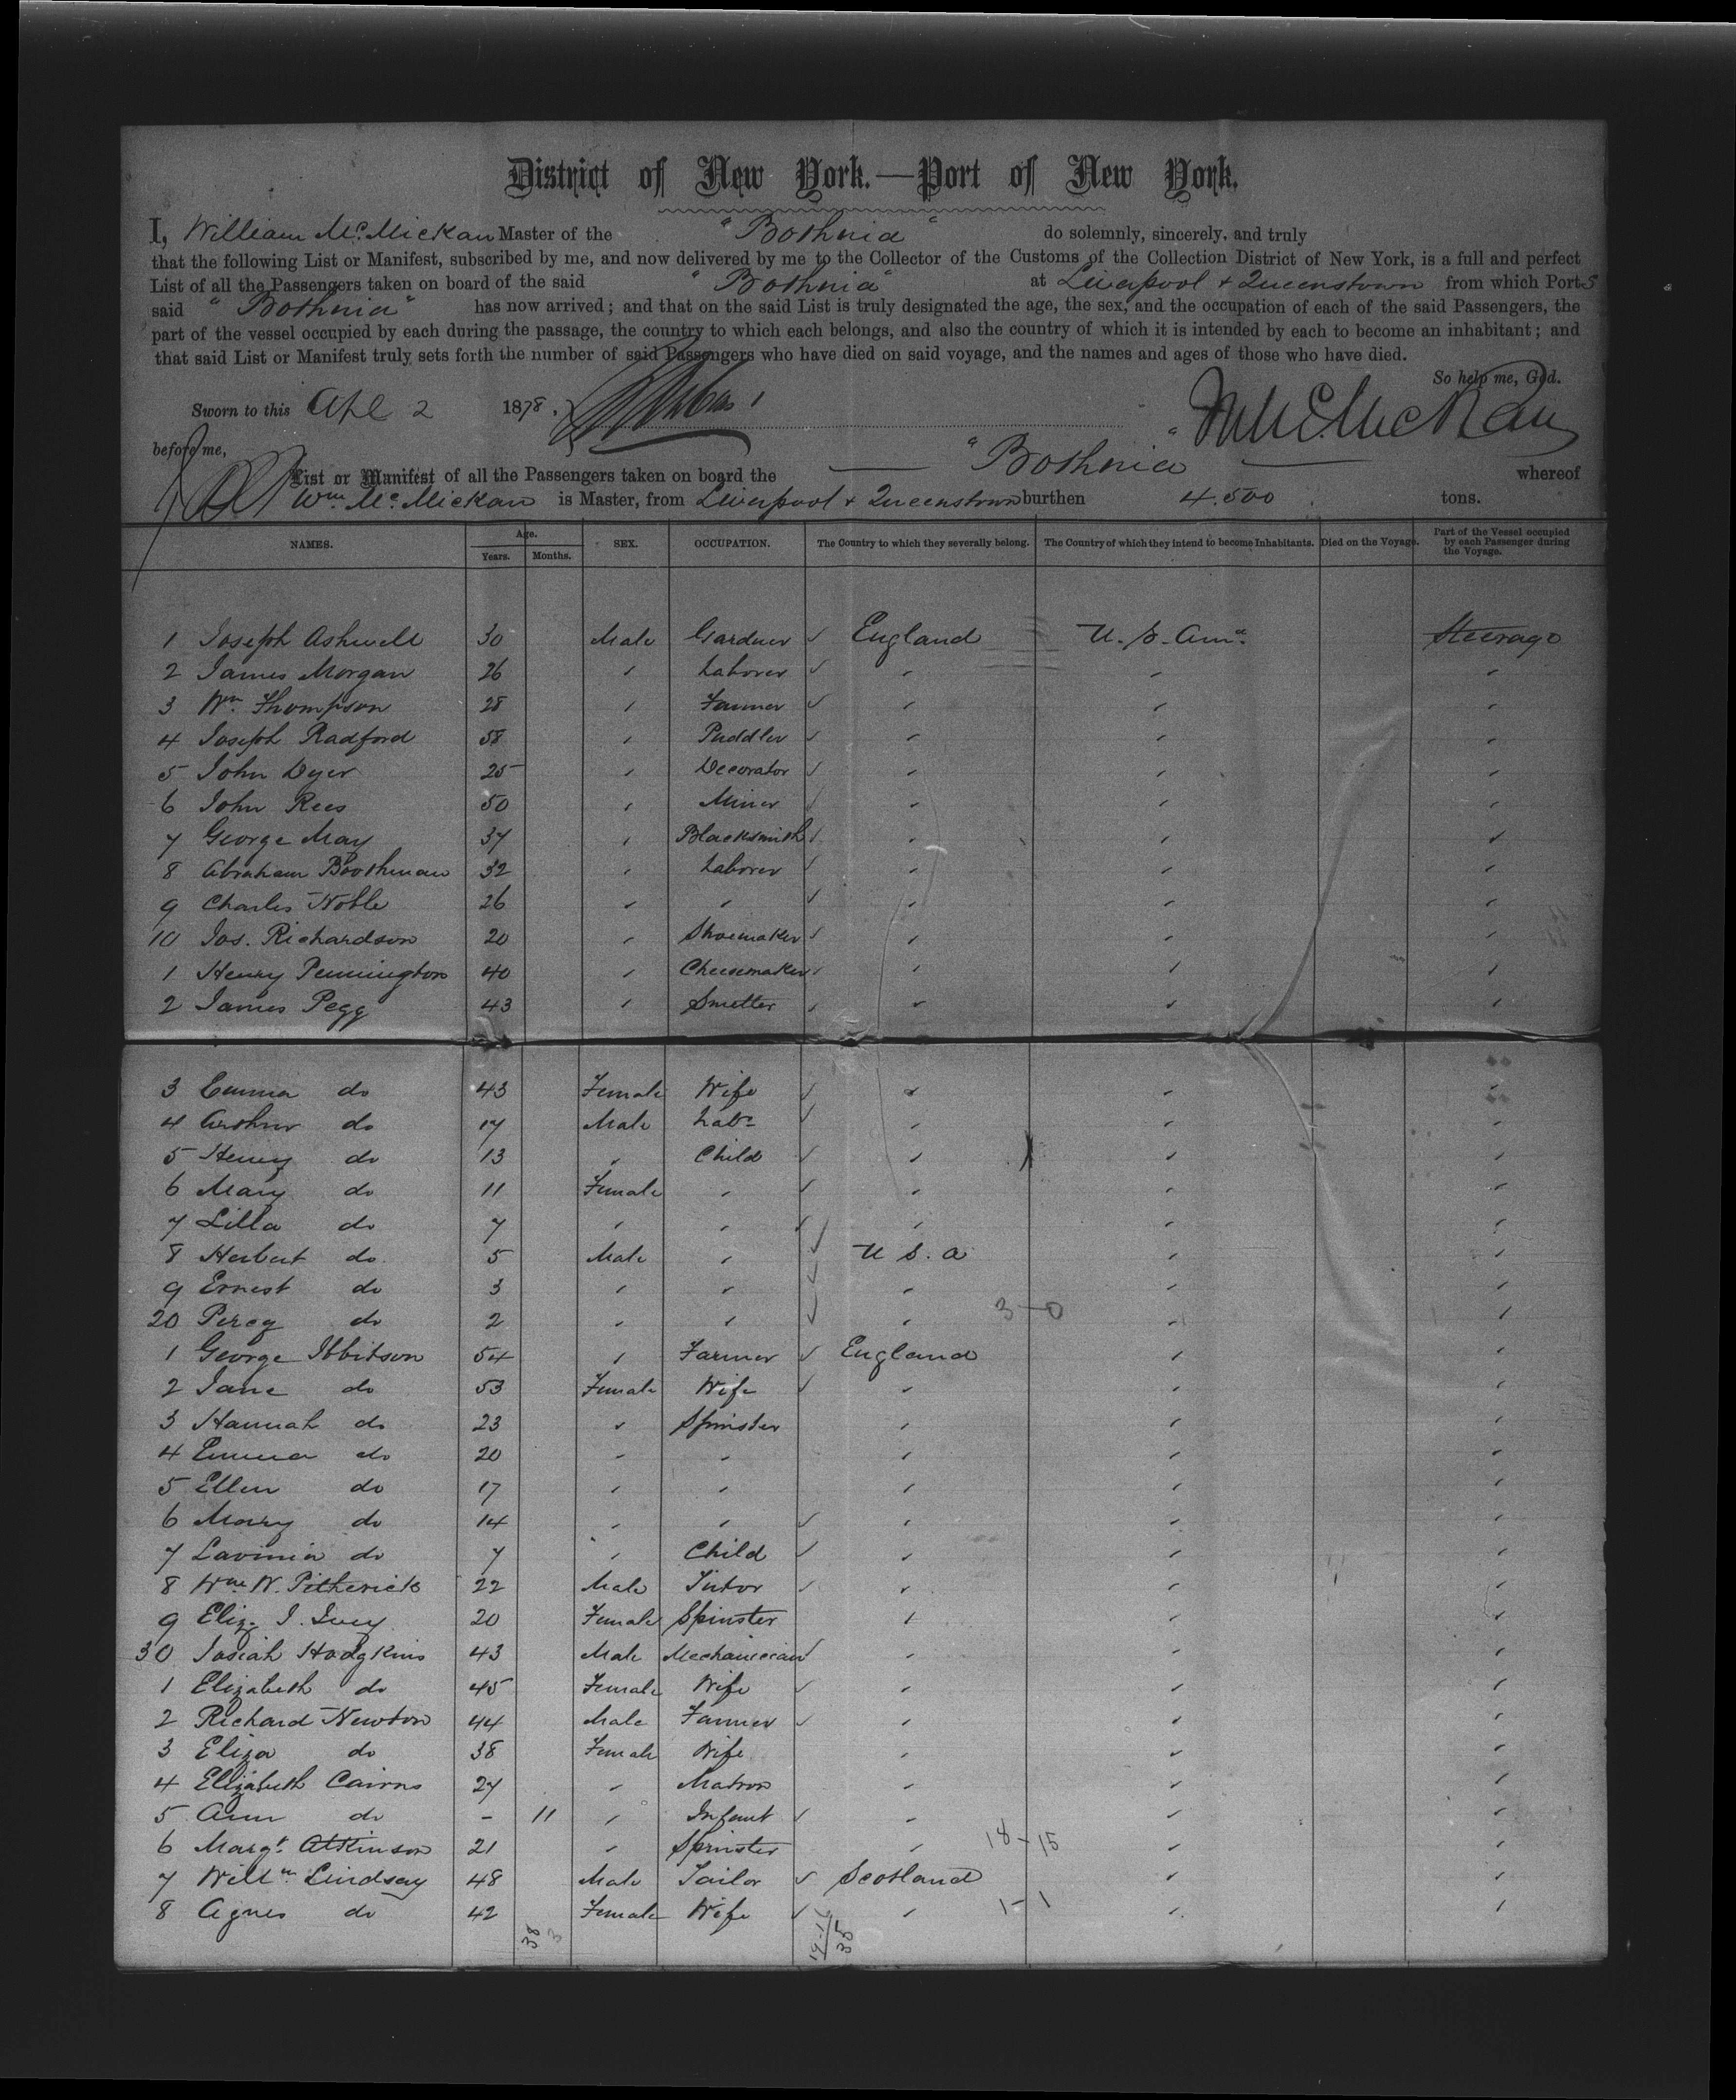 District of New York.—Port of New York.
I, William McMickan Master of the "Bothnia" do solemnly, sincerely, and truly
that the following List or Manifest, subscribed by me, and now delivered by me to the Collector of the Customs of the Collection District of New York, is a full and perfect
List of all the Passengers taken on board of the said "Bothnia" at Liverpool & Queenstown from which Ports
said "Bothnia" has now arrived; and that on the said List is truly designated the age, the sex, and the occupation of each of the said Passengers, the
part of the vessel occupied by each during the passage, the country to which each belongs, and also the country of which it is intended by each to become an inhabitant; and
that said List or Manifest truly sets forth the number of said Passengers who have died on said voyage, and the names and ages of those who have died.
So help me, God.
Sworn to this Apl 2 1878. WMcMickan
before me,
List or Manifest of all the Passengers taken on board the "Bothnia" whereof
Wm. McMickan is Master, from Liverpool & Queenstown burthen 4.500 tons.
NAMES. Age. Years. Months. SEX. OCCUPATION. The Country to which they severally belong. The Country of which they intend to become Inhabitants. Died on the Voyage. Part of the Vessel occupied by each Passenger during the Voyage.
1 Joseph Ashwell 30 Male Gardner ✓ England U.S. Ama. Steerage
2 James Morgan 26 " Laborer ✓ " " "
3 Wm. Thompson 28 " Farmer ✓ " " "
4 Joseph Radford 58 " Puddler ✓ " " "
5 John Dyer 25 " Decorator ✓ " " "
6 John Rees 50 " Miner ✓ " " "
7 George May 37 " Blacksmith ✓ " " "
8 Abraham Boothman 32 " Laborer ✓ " " "
9 Charles Noble 26 " " ✓ " " "
10 Jos. Richardson 20 " Shoemaker ✓ " " "
1 Henry Pennington 40 " Cheesemaker ✓ " " "
2 James Pegg 43 " Smelter ✓ " " "
3 Emma do 43 Female Wife ✓ " " "
4 Arthur do 17 Male Labr ✓ " " "
5 Henry do 13 " Child ✓ " " "
6 Mary do 11 Female " ✓ " " "
7 Lilla do 7 " " ✓ " " "
8 Herbert do 5 Male " ✓ U.S.A " "
9 Ernest do 3 " " ✓ " " "
20 Percy do 2 " " ✓ " 3-0 " "
1 George Ibbitson 54 " Farmer ✓ England " "
2 Jane do 53 Female Wife ✓ " " "
3 Hannah do 23 " Spinster " " "
4 Emma do 20 " " " " "
5 Ellen do 17 " " " " "
6 Mary do 14 " " ✓ " " "
7 Lavinia do 7 " Child ✓ " " "
8 Wm. W. Petherick 22 Male Tutor ✓ " " "
9 Eliz. J. Ivey 20 Female Spinster " " "
30 Josiah Hodgkins 43 Male Mechanician ✓ " " "
1 Elizabeth do 45 Female Wife ✓ " " "
2 Richard Newton 44 Male Farmer ✓ " " "
3 Eliza do 38 Female Wife " " "
4 Elizabeth Cairns 27 " Matron " " "
5 Ann do - 11 " Infant ✓ " " "
6 Margt. Atkinson 21 " Spinster " 18-15 " "
7 Willm. Lindsay 48 Male Tailor ✓ Scotland " "
8 Agnes do 42 Female Wife ✓ " 1-1 " "
38 3 19-16 35